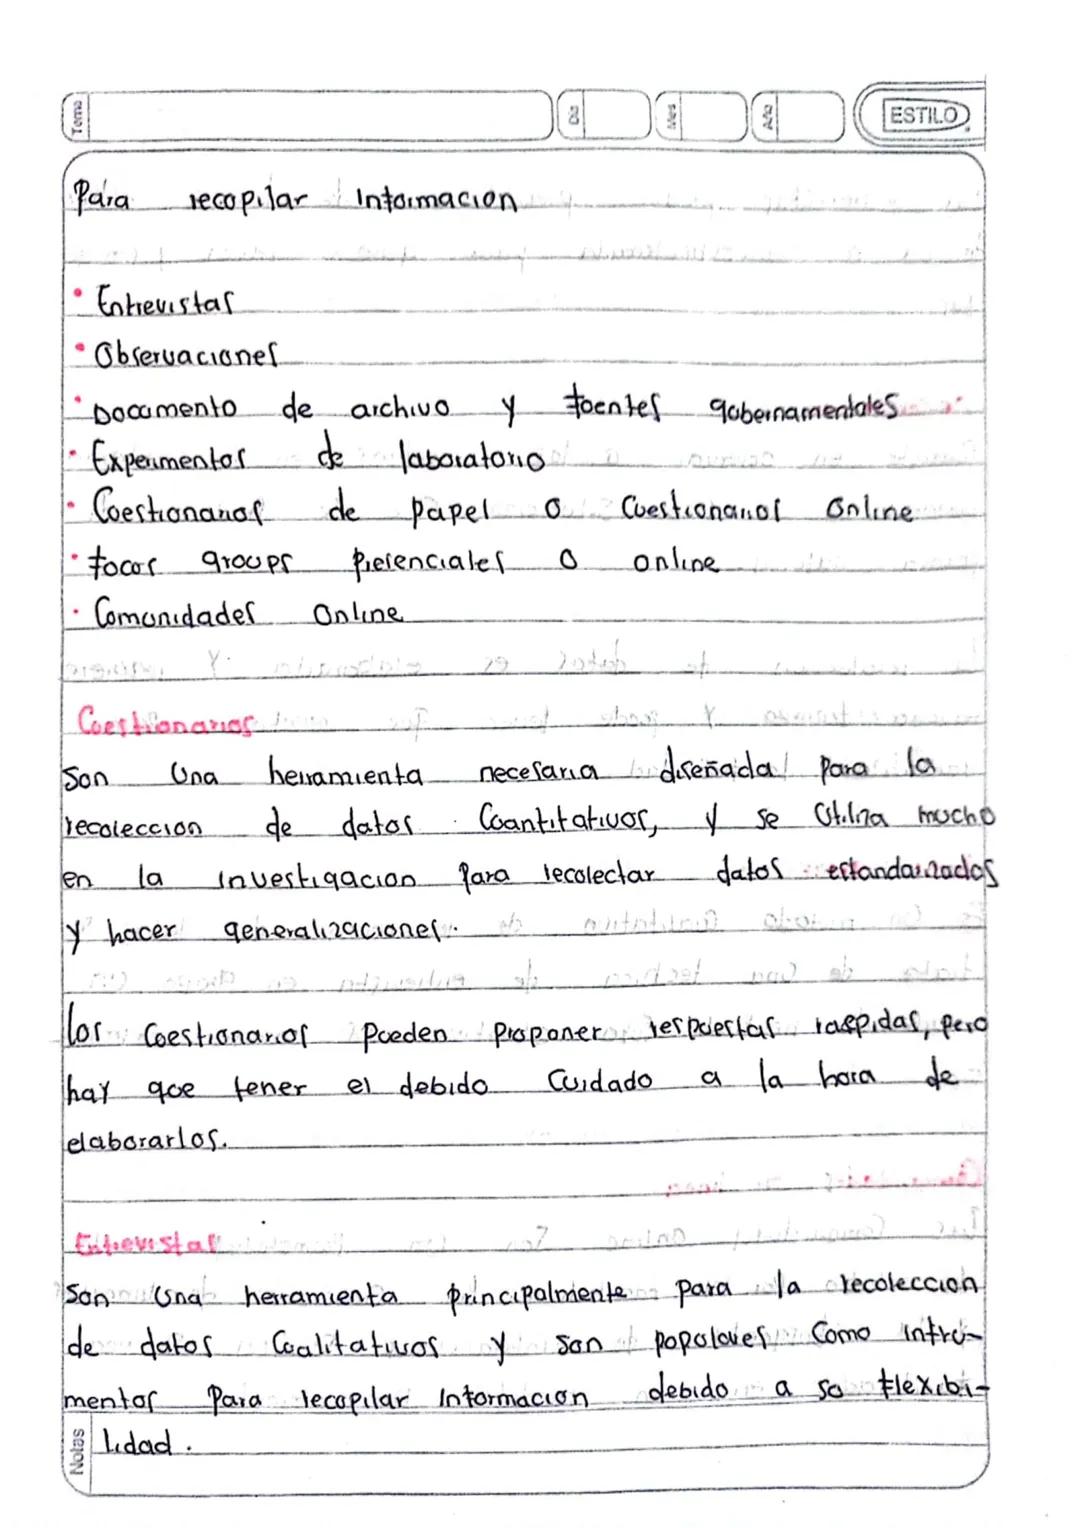 Tema
Dia
Mes
Año
ESTILO
Para recopilar Informacion
• Entrevistas
• Observaciones
• Documento de archivo y foentes gobernamentales
• Experimentos de laboratorio
• Coestionarios de papel o Cuestionarios Online
• focos groups presenciales o online
• Comunidades Online
Coestionarios
Son Una herramienta necesaria diseñada para la
recoleccion de datos Cuantitativos, y se Utiliza mucho
en la investigacion para recolectar datos estandarizados
y hacer generalizaciones.
Los Coestionarios pueden proponer respuestas raspidas, pero
hay que tener el debido Cuidado a la hora de
elaborarlos.
Entrevistas
Son Una herramienta principalmente para la recoleccion
de datos Cualitativos y son populares Como intru-
mentos Para recopilar Informacion debido a su flexibi-
lidad.
Notas